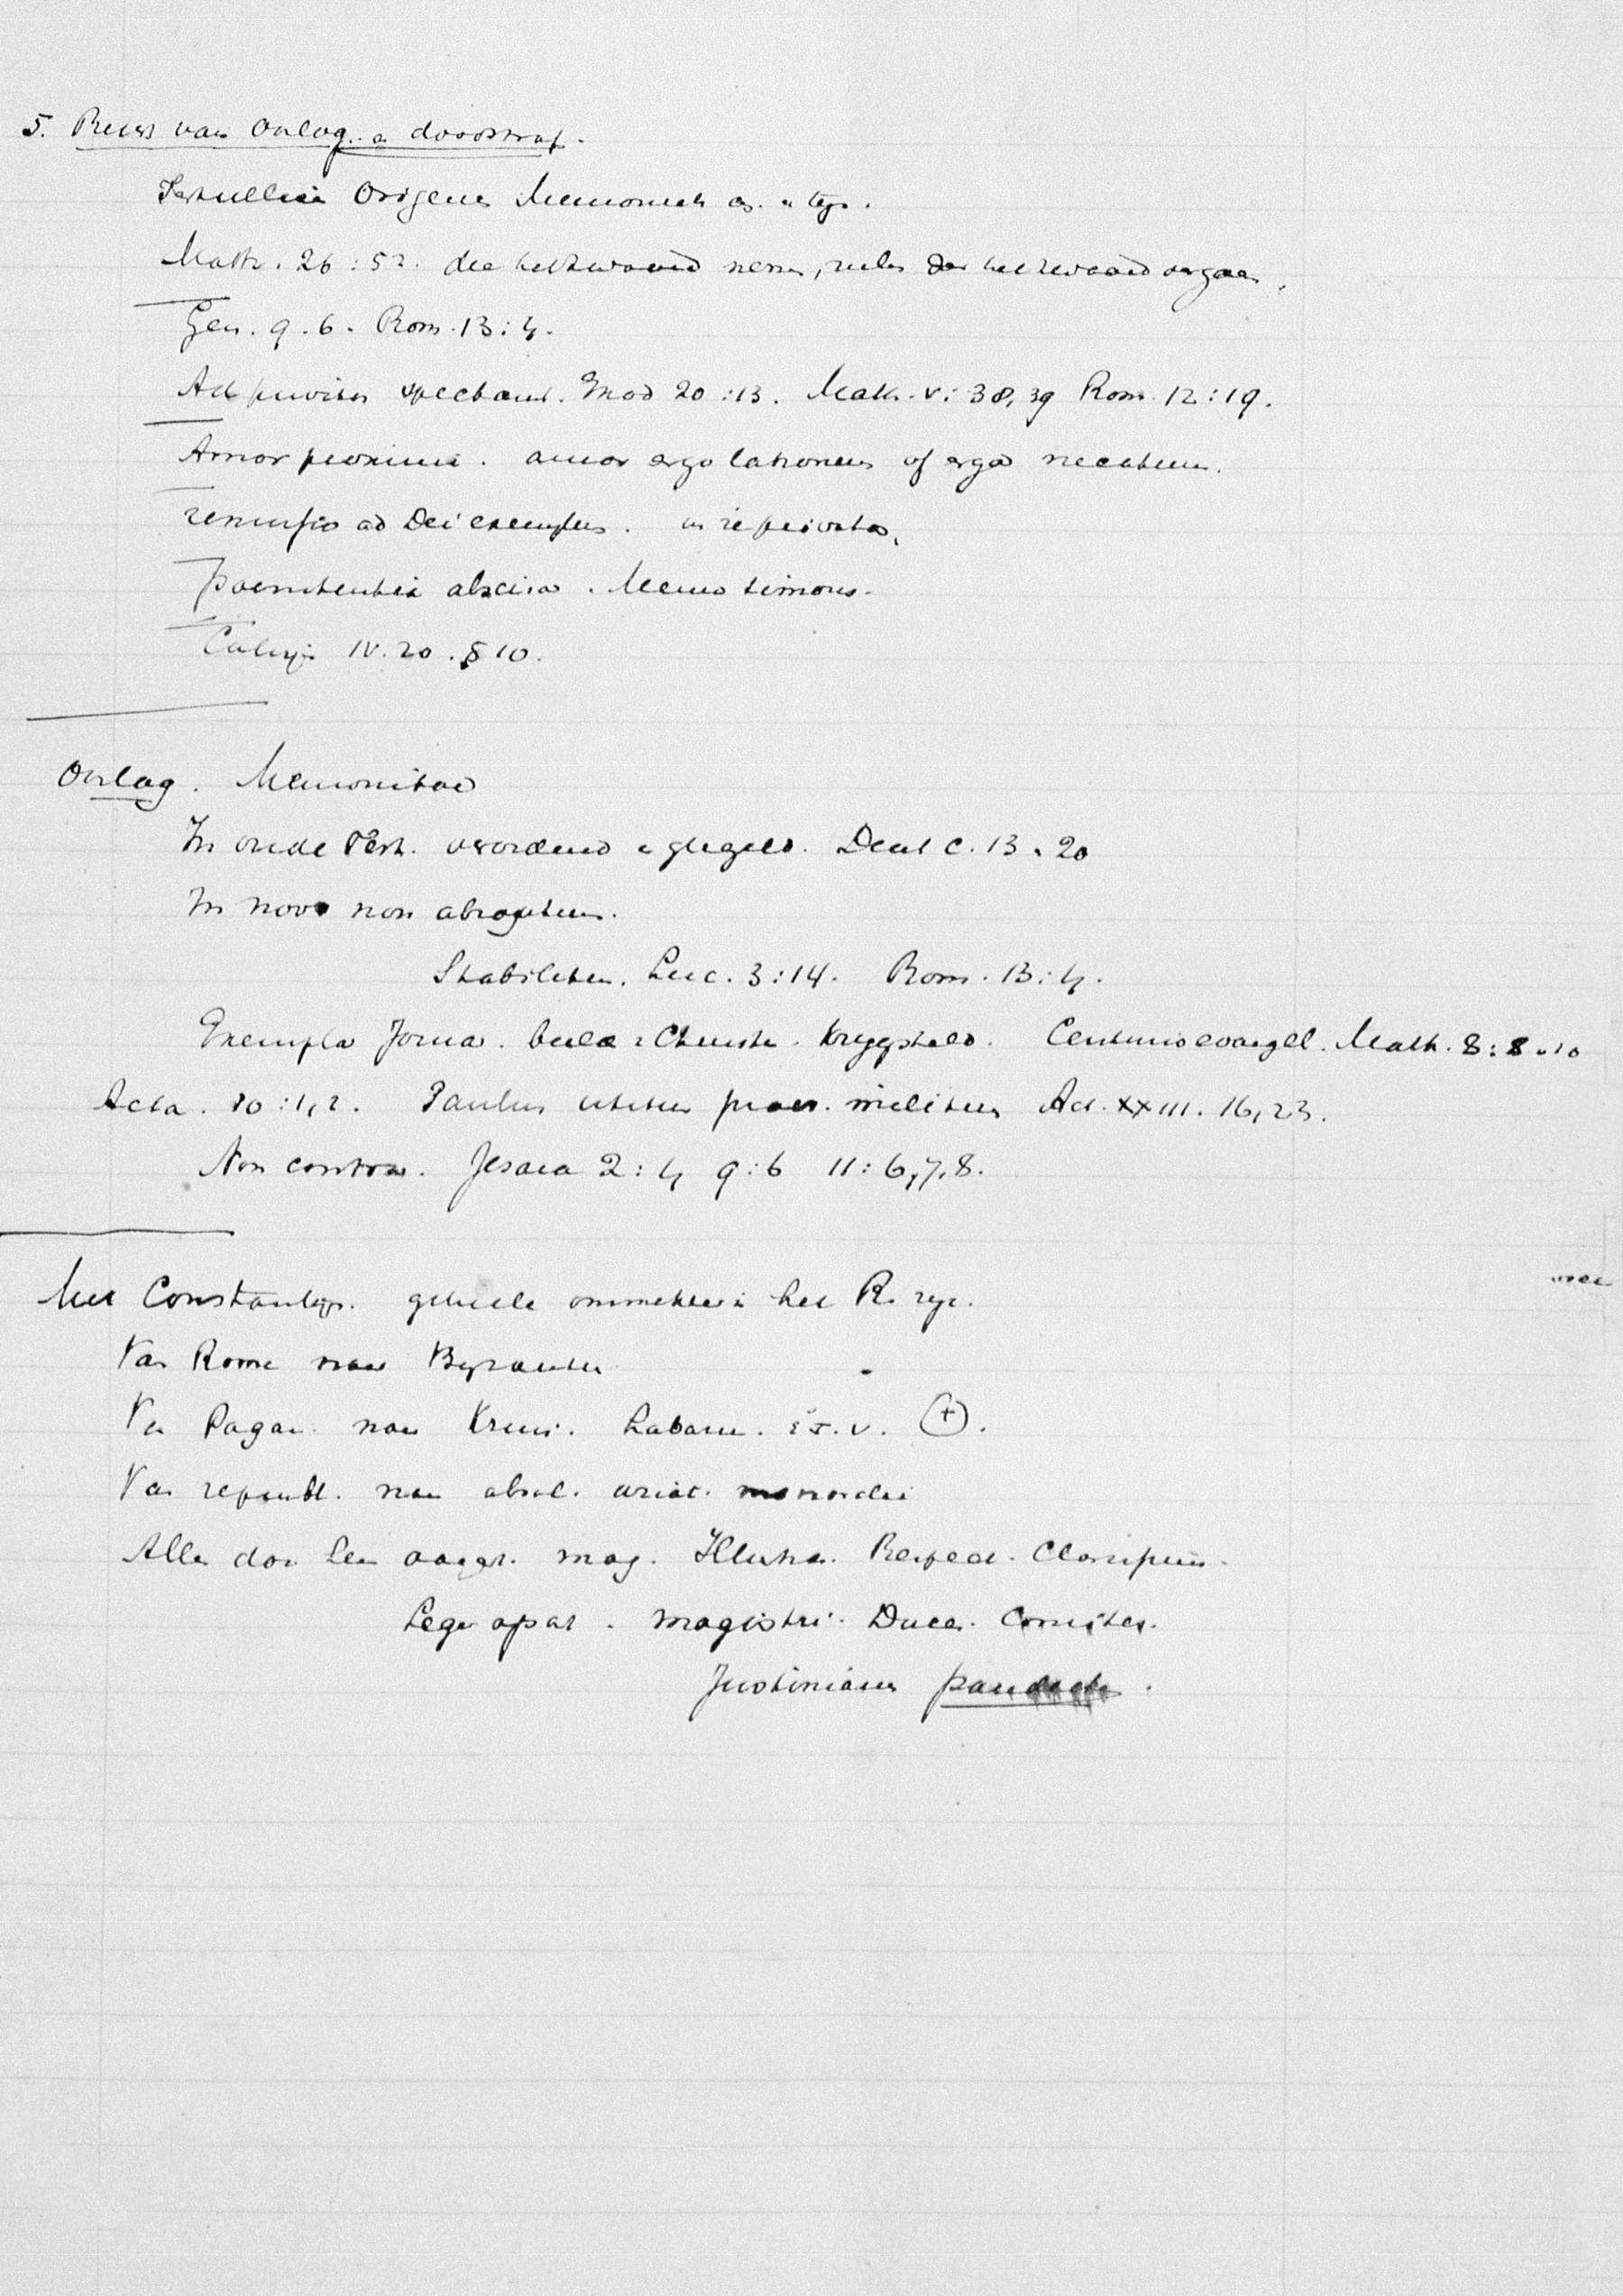 5. Recht van Oorlog. en doodstraf.
Tertullian Origenes Mennonieten en. a tegn.
Matth. 26:52. die het zwaard nemen, zullen door het zwaard vergaan.
Gen. 9.6. Rom. 13:4.
Ad privatos spectant. Exod 20:13. Matth. V: 38, 39 Rom. 12:19.
Amor proximi. amor erga latronem of erga necatum.
remissio ad Dei exemplum. in re privata.
poenitentia abscisa. Menno Simons.
Calvijn IV.20.§10.
Oorlog. Mennonitae
In oude Test. verordend en geregeld. Deut c. 13. 20
In novo non abrogatum.
Stabilitum. Luc. 3:14. Rom. 13:4.
Exempla Jozua. Christen. krijgsheld. Centurio evangel. Matth. 8:8.10
Acta. 10:1,2. Paulus utitur praes. militum Act. XXIII. 16,23.
Non contra. Jesaia 2:4 9:6 11:6,7,8.
Met Constantijn. geheele ommekeer in het R. rijk.
Van Rome naar Byzantium
Van Pagan. naar Kruis. Labarum. ἐ.τ.ν. (+).
Van republ. naar absol. monarchie
Alle door een mag. Illustres. Perfect. Clarissimi.
Lege apat. magistri. Duces. Comites.
Justinianus pandecten.